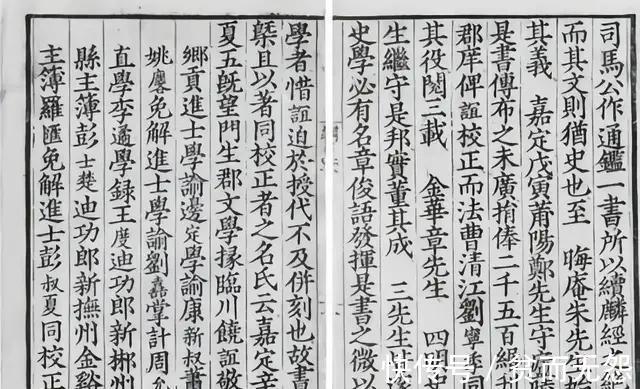 司馬公作通鑑一書所以續麟經
而其文則猶史也至 晦庵朱先
其義 嘉定戊寅莆陽鄭先生守
是書傳布之未廣捐俸二千五百
郡庠俾誼校正而法曹清江劉寧
其役閱三載 金華章先生 四
生繼守是邦實董其成 三先生
史學必有名章俊語發揮是書之微以
學者惜誼迫於授代不及併刻也故書
槩且以著同校正者之名氏云嘉定辛
夏五旣望門生郡文學掾臨川饒誼敬
鄉貢進士學諭邊定學諭康新叔蕭
姚麐免解進士學諭劉嘉掌計周
直學李遹學録王度迪功郎新郴州
縣主簿彭士楚迪功郎新撫州金谿
主簿羅匯免解進士彭叔夏同校正
快传号/贫而无怨